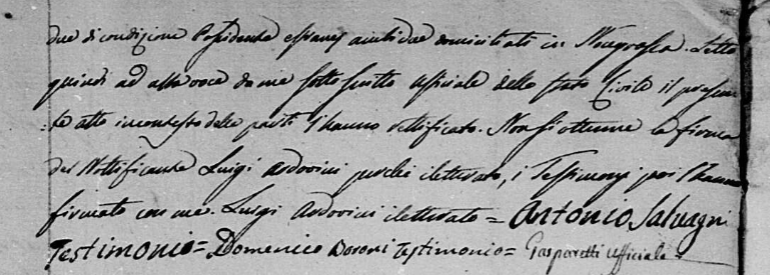 due di condizione Possidente essanj ambidue domiciliati in Letto
quindi ad alta voce da me sotto scritto Ufficiale dello stato Civile il presen
te atto in contesto delle parti l'hanno rettificato. Non si ottenne la firma
del Nottificante Luigi Ardovini perché iletterato, i Testimonj poi l'hanno
firmato con me. Luigi Ardovini iletterato = Antonio Salvagni
Testimonio = Domenico Boroni Testimonio = Gasparetti Ufficiale